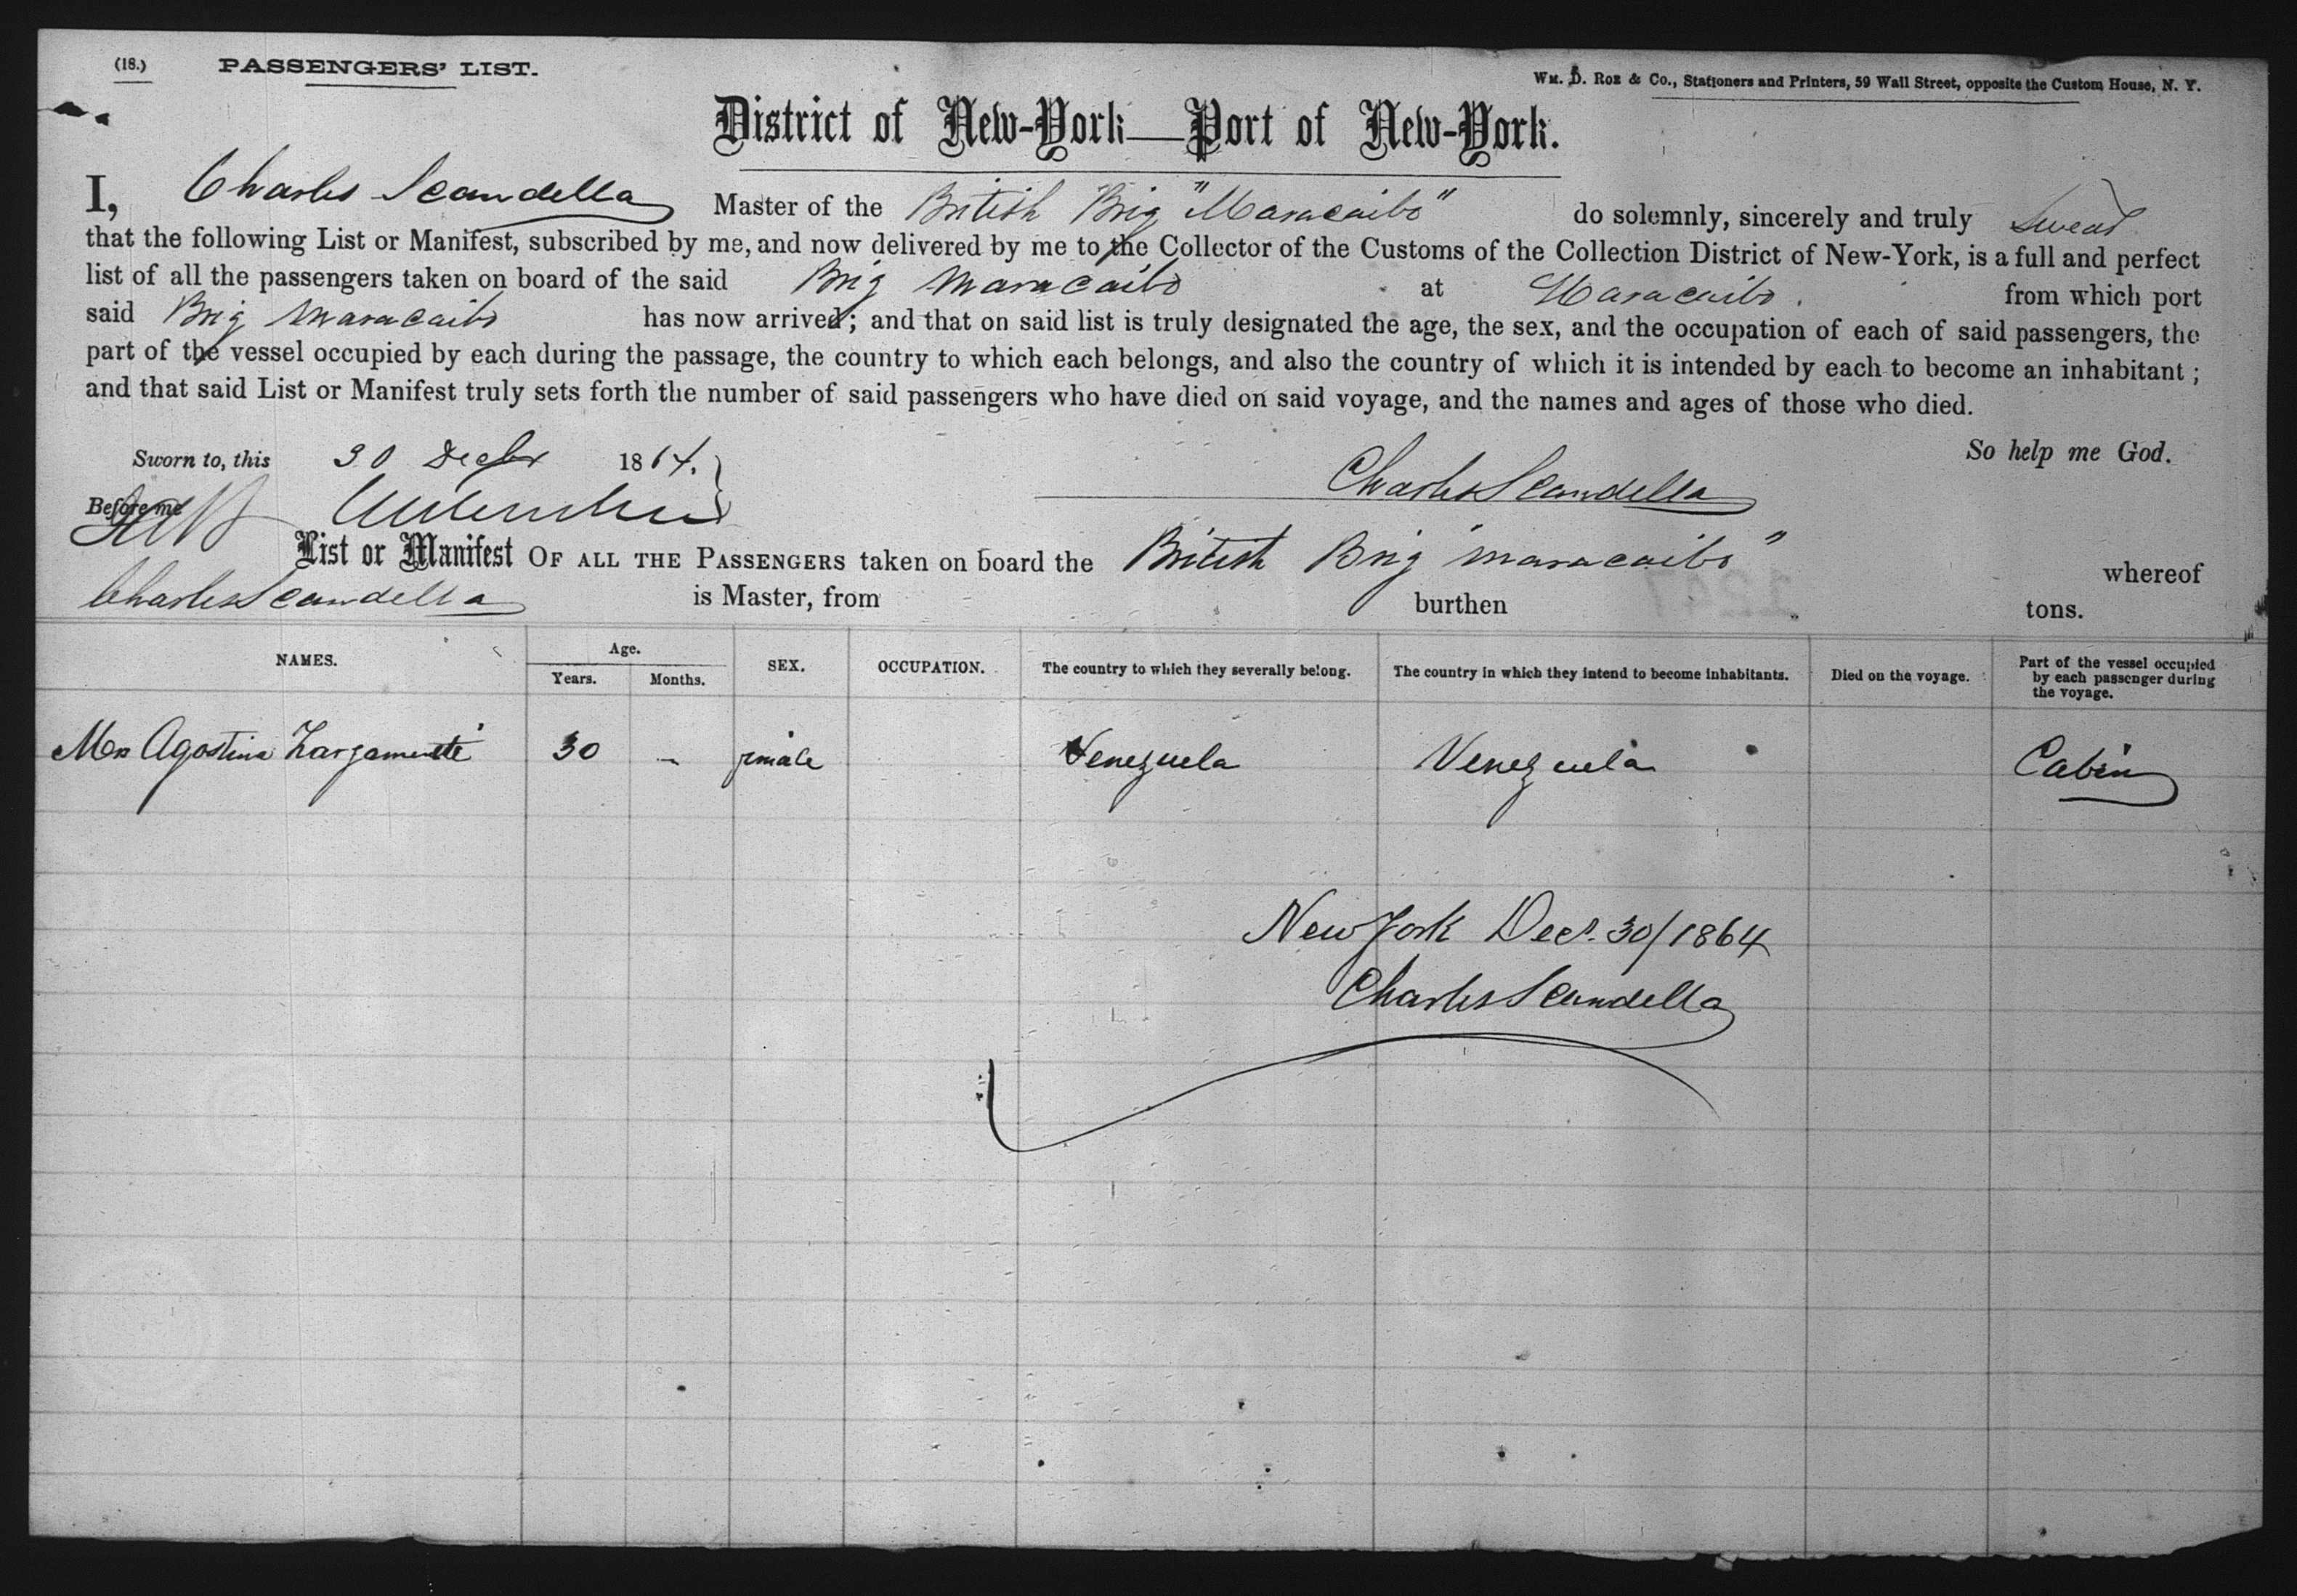 (18.) PASSENGERS' LIST.
Wm. D. Roe & Co., Stationers and Printers, 59 Wall Street, opposite the Custom House, N. Y.
District of New-York—Port of New-York.
I, Charles Scandella Master of the British Brig "Maracaibo" do solemnly, sincerely and truly swear
that the following List or Manifest, subscribed by me, and now delivered by me to the Collector of the Customs of the Collection District of New-York, is a full and perfect
list of all the passengers taken on board of the said Brig Maracaibo at Maracaibo. from which port
said Brig Maracaibo has now arrived; and that on said list is truly designated the age, the sex, and the occupation of each of said passengers, the
part of the vessel occupied by each during the passage, the country to which each belongs, and also the country of which it is intended by each to become an inhabitant;
and that said List or Manifest truly sets forth the number of said passengers who have died on said voyage, and the names and ages of those who died.
So help me God.
Sworn to, this 30 Decbr 1864.
Charles Scandella
Before me
List or Manifest OF ALL THE PASSENGERS taken on board the British Brig "Maracaibo" whereof
Charles Scandella is Master, from burthen tons.
NAMES. Age. Years. Months. SEX. OCCUPATION. The country to which they severally belong. The country in which they intend to become inhabitants. Died on the voyage. Part of the vessel occupied by each passenger during the voyage.
Agostina 30 - female Venezuela Venezuela Cabin
New York Decr. 30/1864
Charles Scandella